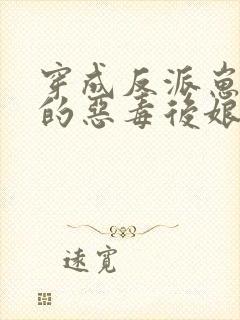 穿成反派崽
的惡毒後娘
遠寬